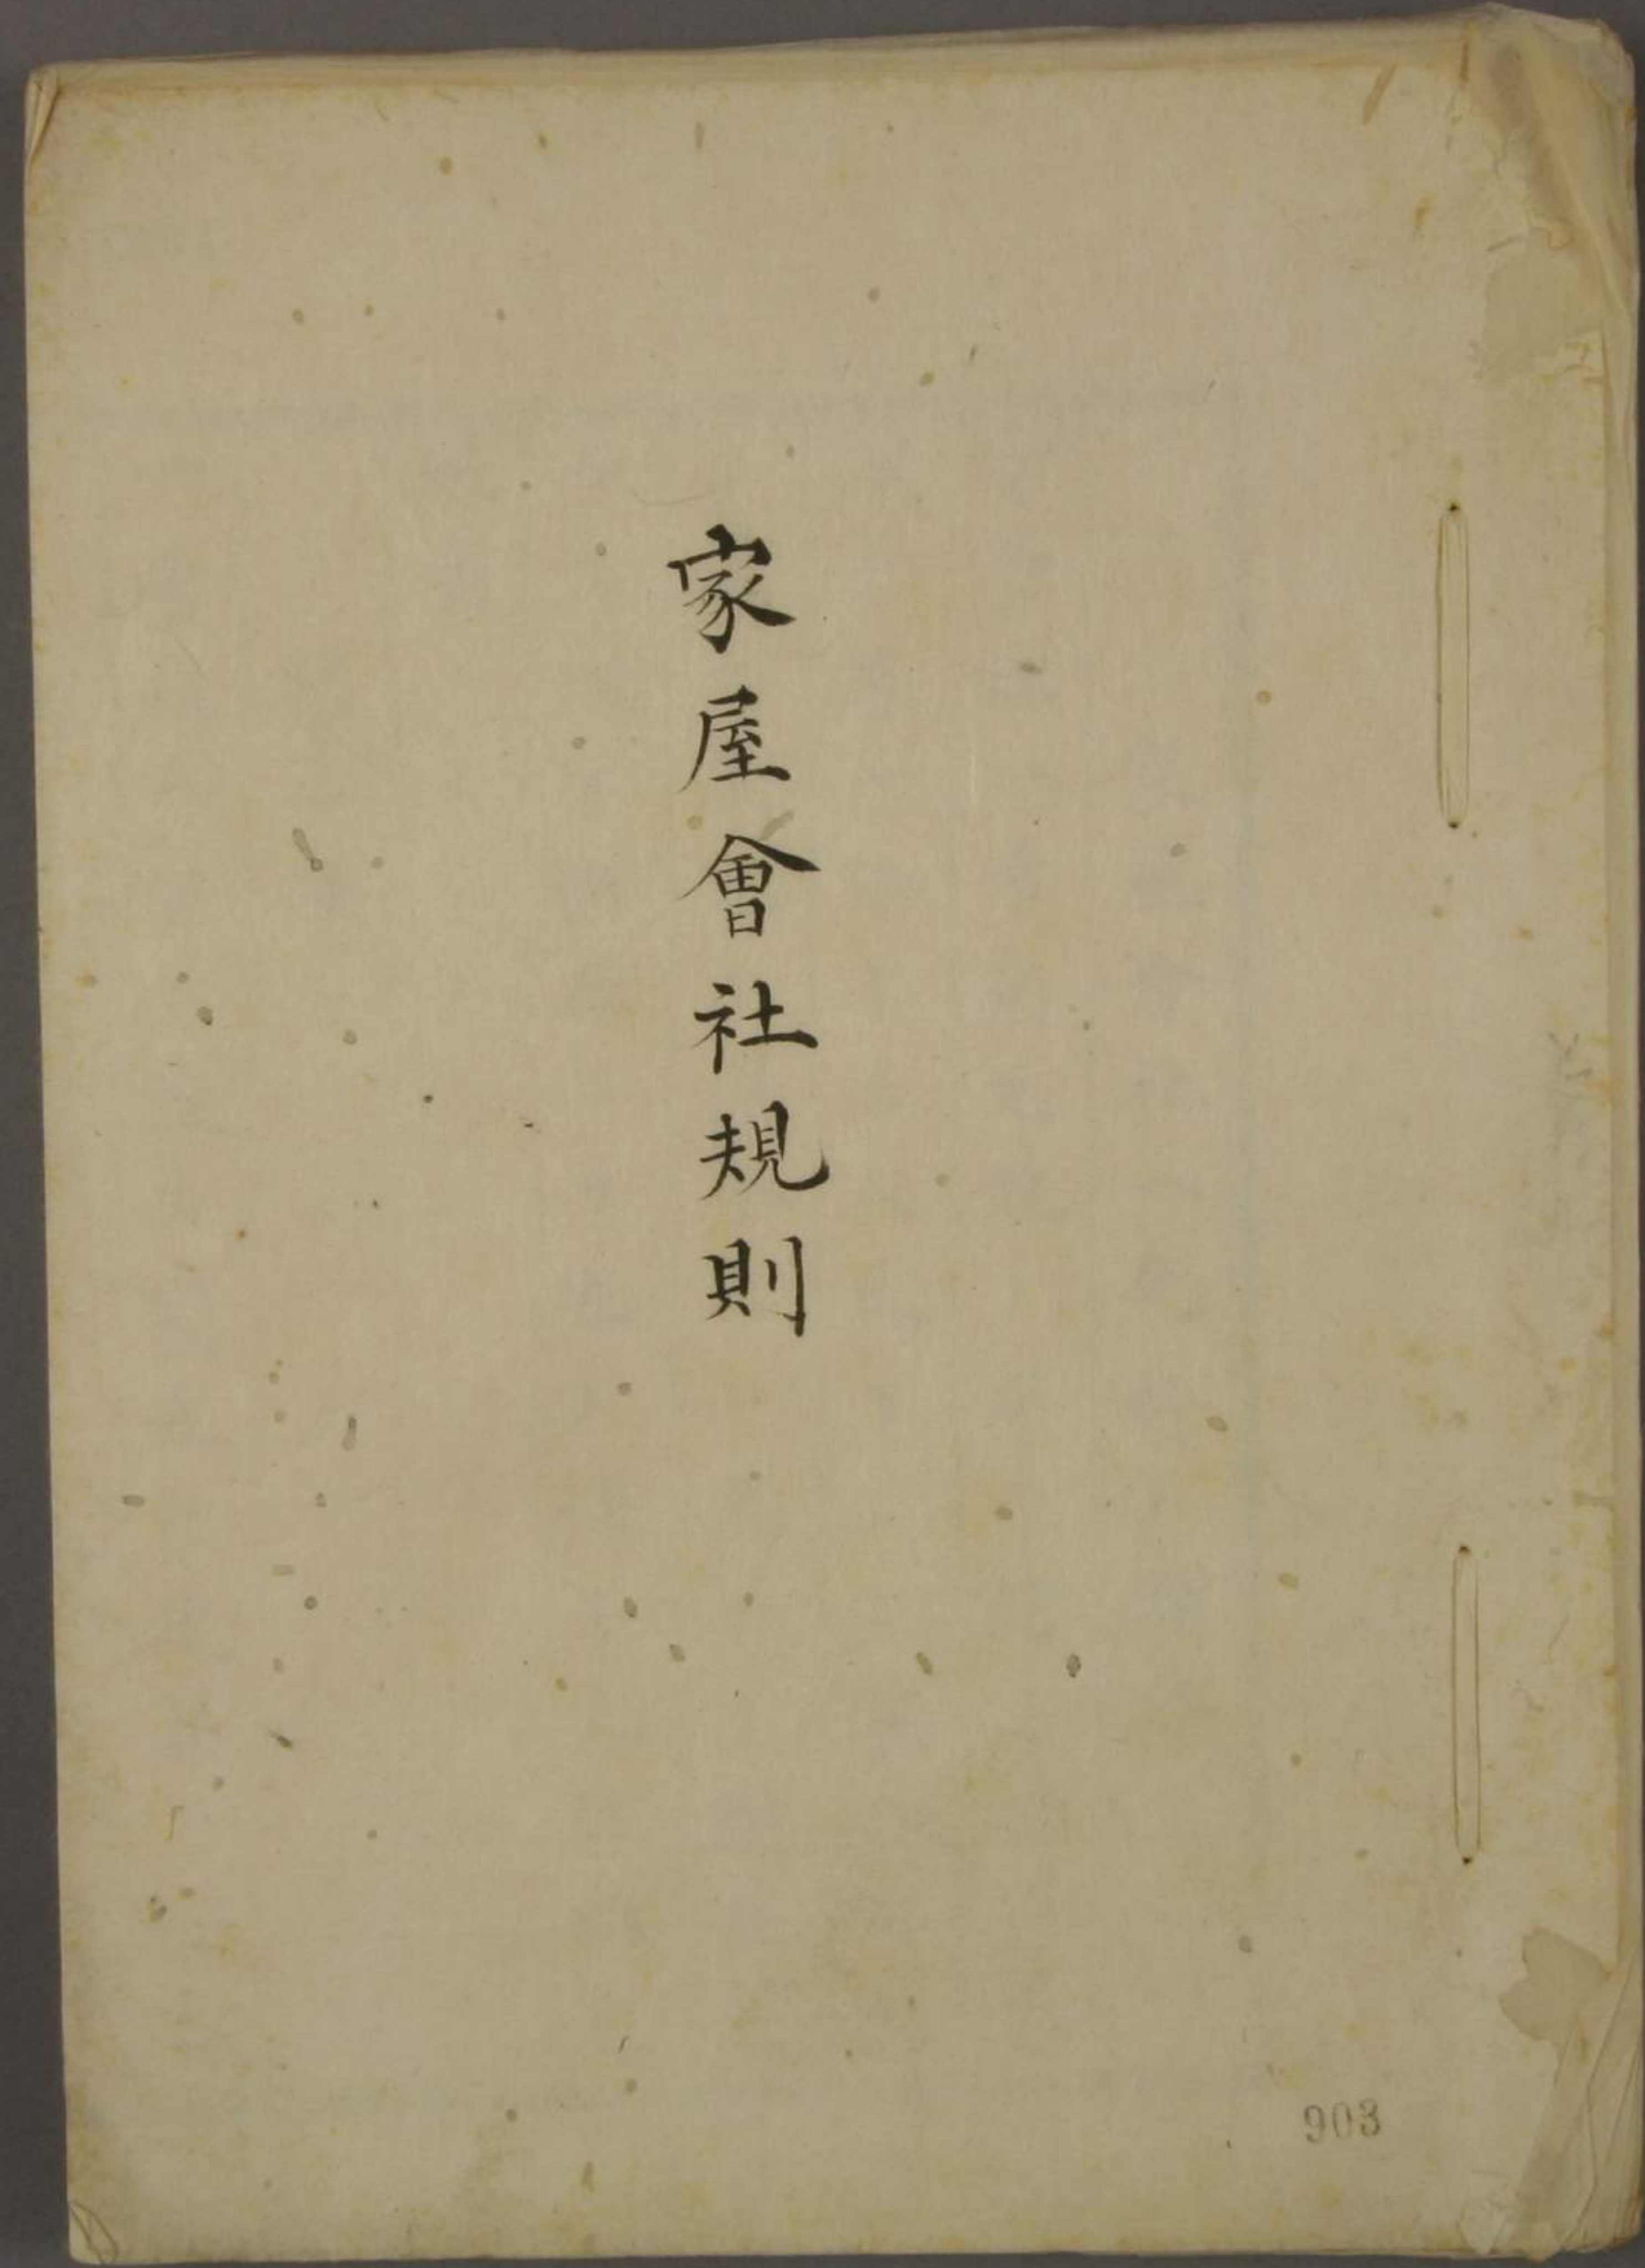 家屋會社規則
903